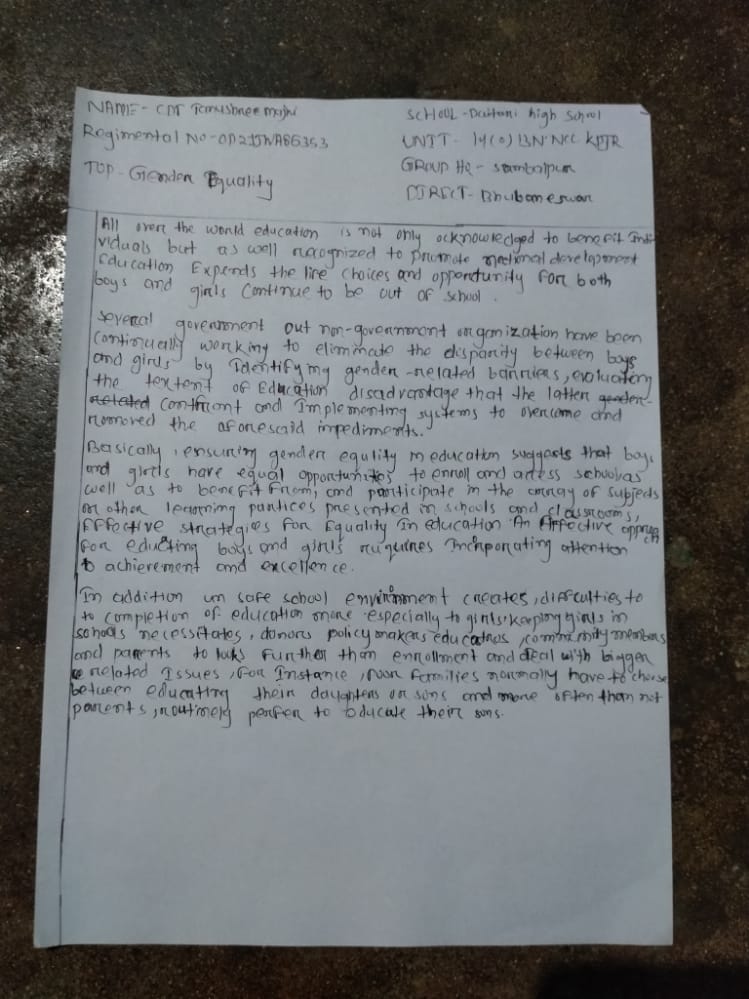 NAME - CDT Tanushree majhi
Regimental No - OD21JWA86353
TOP - Gender Equality
SCHOOL - Daitari high school
UNIT - 14(O) BN NCC KPJR
GROUP HQ - Sambalpur
DIRECT - Bhubaneswar
All over the world education is not only acknowledged to benefit indi
viduals but as well recognized to promote national development
Education Expends the life choices and opportunity for both
boys and girls Continue to be out of school.
Several government out non-government organization have been
continually working to eliminate the disparity between boys
and girls by Identifying gender-related barriers, evaluating
the textent of Education disadvantage that the latter gender-
related Confront and Implementing systems to overcome and
removed the aforesaid impediments.
Basically, ensuring gender equility in education suggests that boys
and girls have equal opportunites to enroll and access school as
well as to benefit from, and participate in the array of subjects
or other learning partices presented in schools and classrooms,
Effective strategies For Equality In education An Affective approach
For educting boys and girls ruquires Incorporating attention
to achievement and excellence.
In addition un safe school environment creates, difficulties to
to completion of education more especially to girls. keeping girls in
schools necessitates, donors policy makers educators, community members
and parents to looks further than enrollment and deal with bigger
related Issues, For Instance, poor families normally have to choose
between educating their daughters or sons and more often than not
parents, routinely perfer to educate their sons.